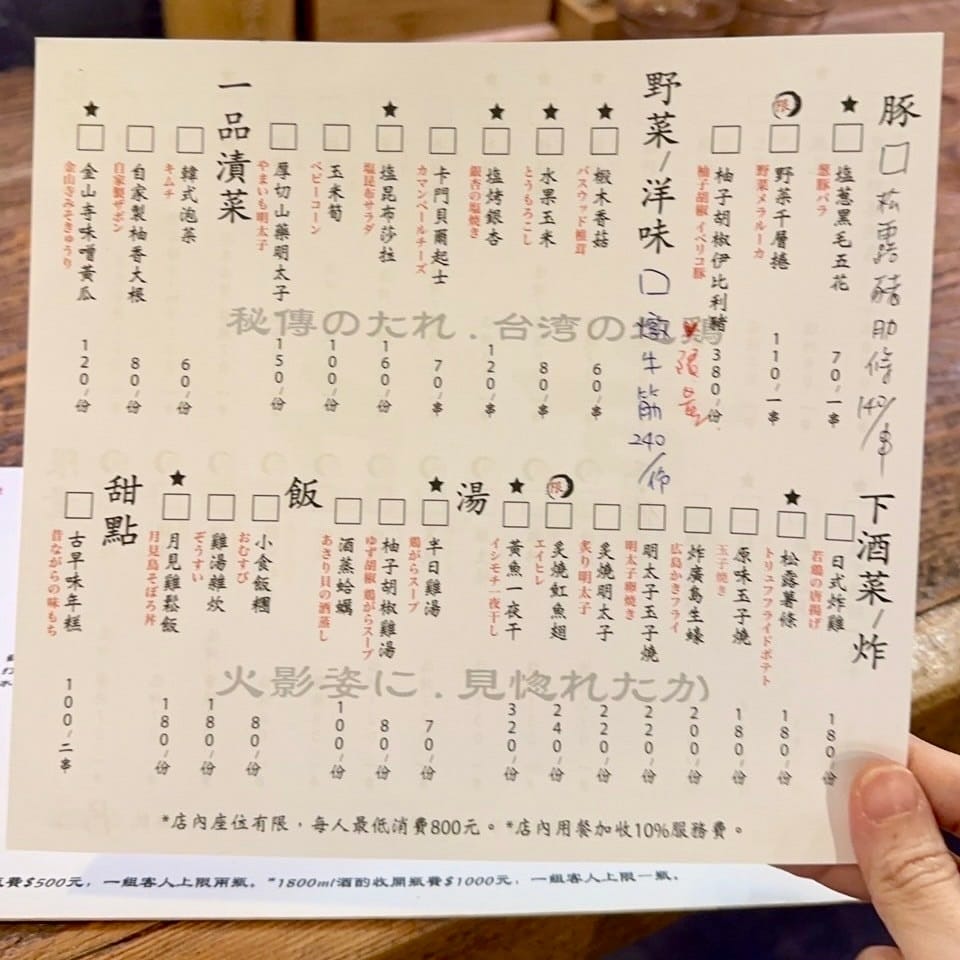 豚
口 松露豬肋條 140/串
★ 塩葱黑毛五花 70/一串
葱豚バラ
限 野菜千層捲 110/一串
野菜メラルーカ
柚子胡椒伊比利豬 380/份
柚子胡椒 イベリコ豚
限量
野菜/洋味
口 燉牛筋 240/份
★ 椴木香菇 60/串
バスウッド椎茸
★ 水果玉米 80/串
とうもろこし
★ 塩烤銀杏 120/串
銀杏の塩焼き
卡門貝爾起士 70/串
カマンベールチーズ
★ 塩昆布莎拉 160/份
塩昆布サラダ
玉米筍 100/份
ベビーコーン
厚切山藥明太子 150/份
やまいも明太子
一品漬菜
韓式泡菜 60/份
キムチ
自家製柚香大根 80/份
自家製ザボン
★ 金山寺味噌黃瓜 120/份
金山寺みそきゅうり
秘傳のたれ.台湾の地鶏
下酒菜/炸
日式炸雞 180/份
若鶏の唐揚げ
★ 松露薯條 180/份
トリュフフライドポテト
原味玉子燒 180/份
玉子焼き
炸廣島生蠔 200/份
広島かきフライ
明太子玉子燒 220/份
明太子卵焼き
炙燒明太子 220/份
炙り明太子
限 炙燒魟魚翅 240/份
エイヒレ
★ 黃魚一夜干 320/份
イシモチ一夜干し
湯
★ 半日雞湯 70/份
鶏がらスープ
柚子胡椒雞湯 80/份
ゆず胡椒 鶏がらスープ
酒蒸蛤蠣 100/份
あさり貝の酒蒸し
飯
小食飯糰 80/份
おむすび
雞湯雜炊 180/份
ぞうすい
★ 月見雞鬆飯 180/份
月見鳥そぼろ丼
甜點
古早味年糕 100/二串
昔ながらの味もち
火影姿に.見惚れたか
*店內座位有限，每人最低消費800元。*店內用餐加收10%服務費。
費$500元，一組客人上限兩瓶。*1800ml酒酌收開瓶費$1000元，一組客人上限一瓶。